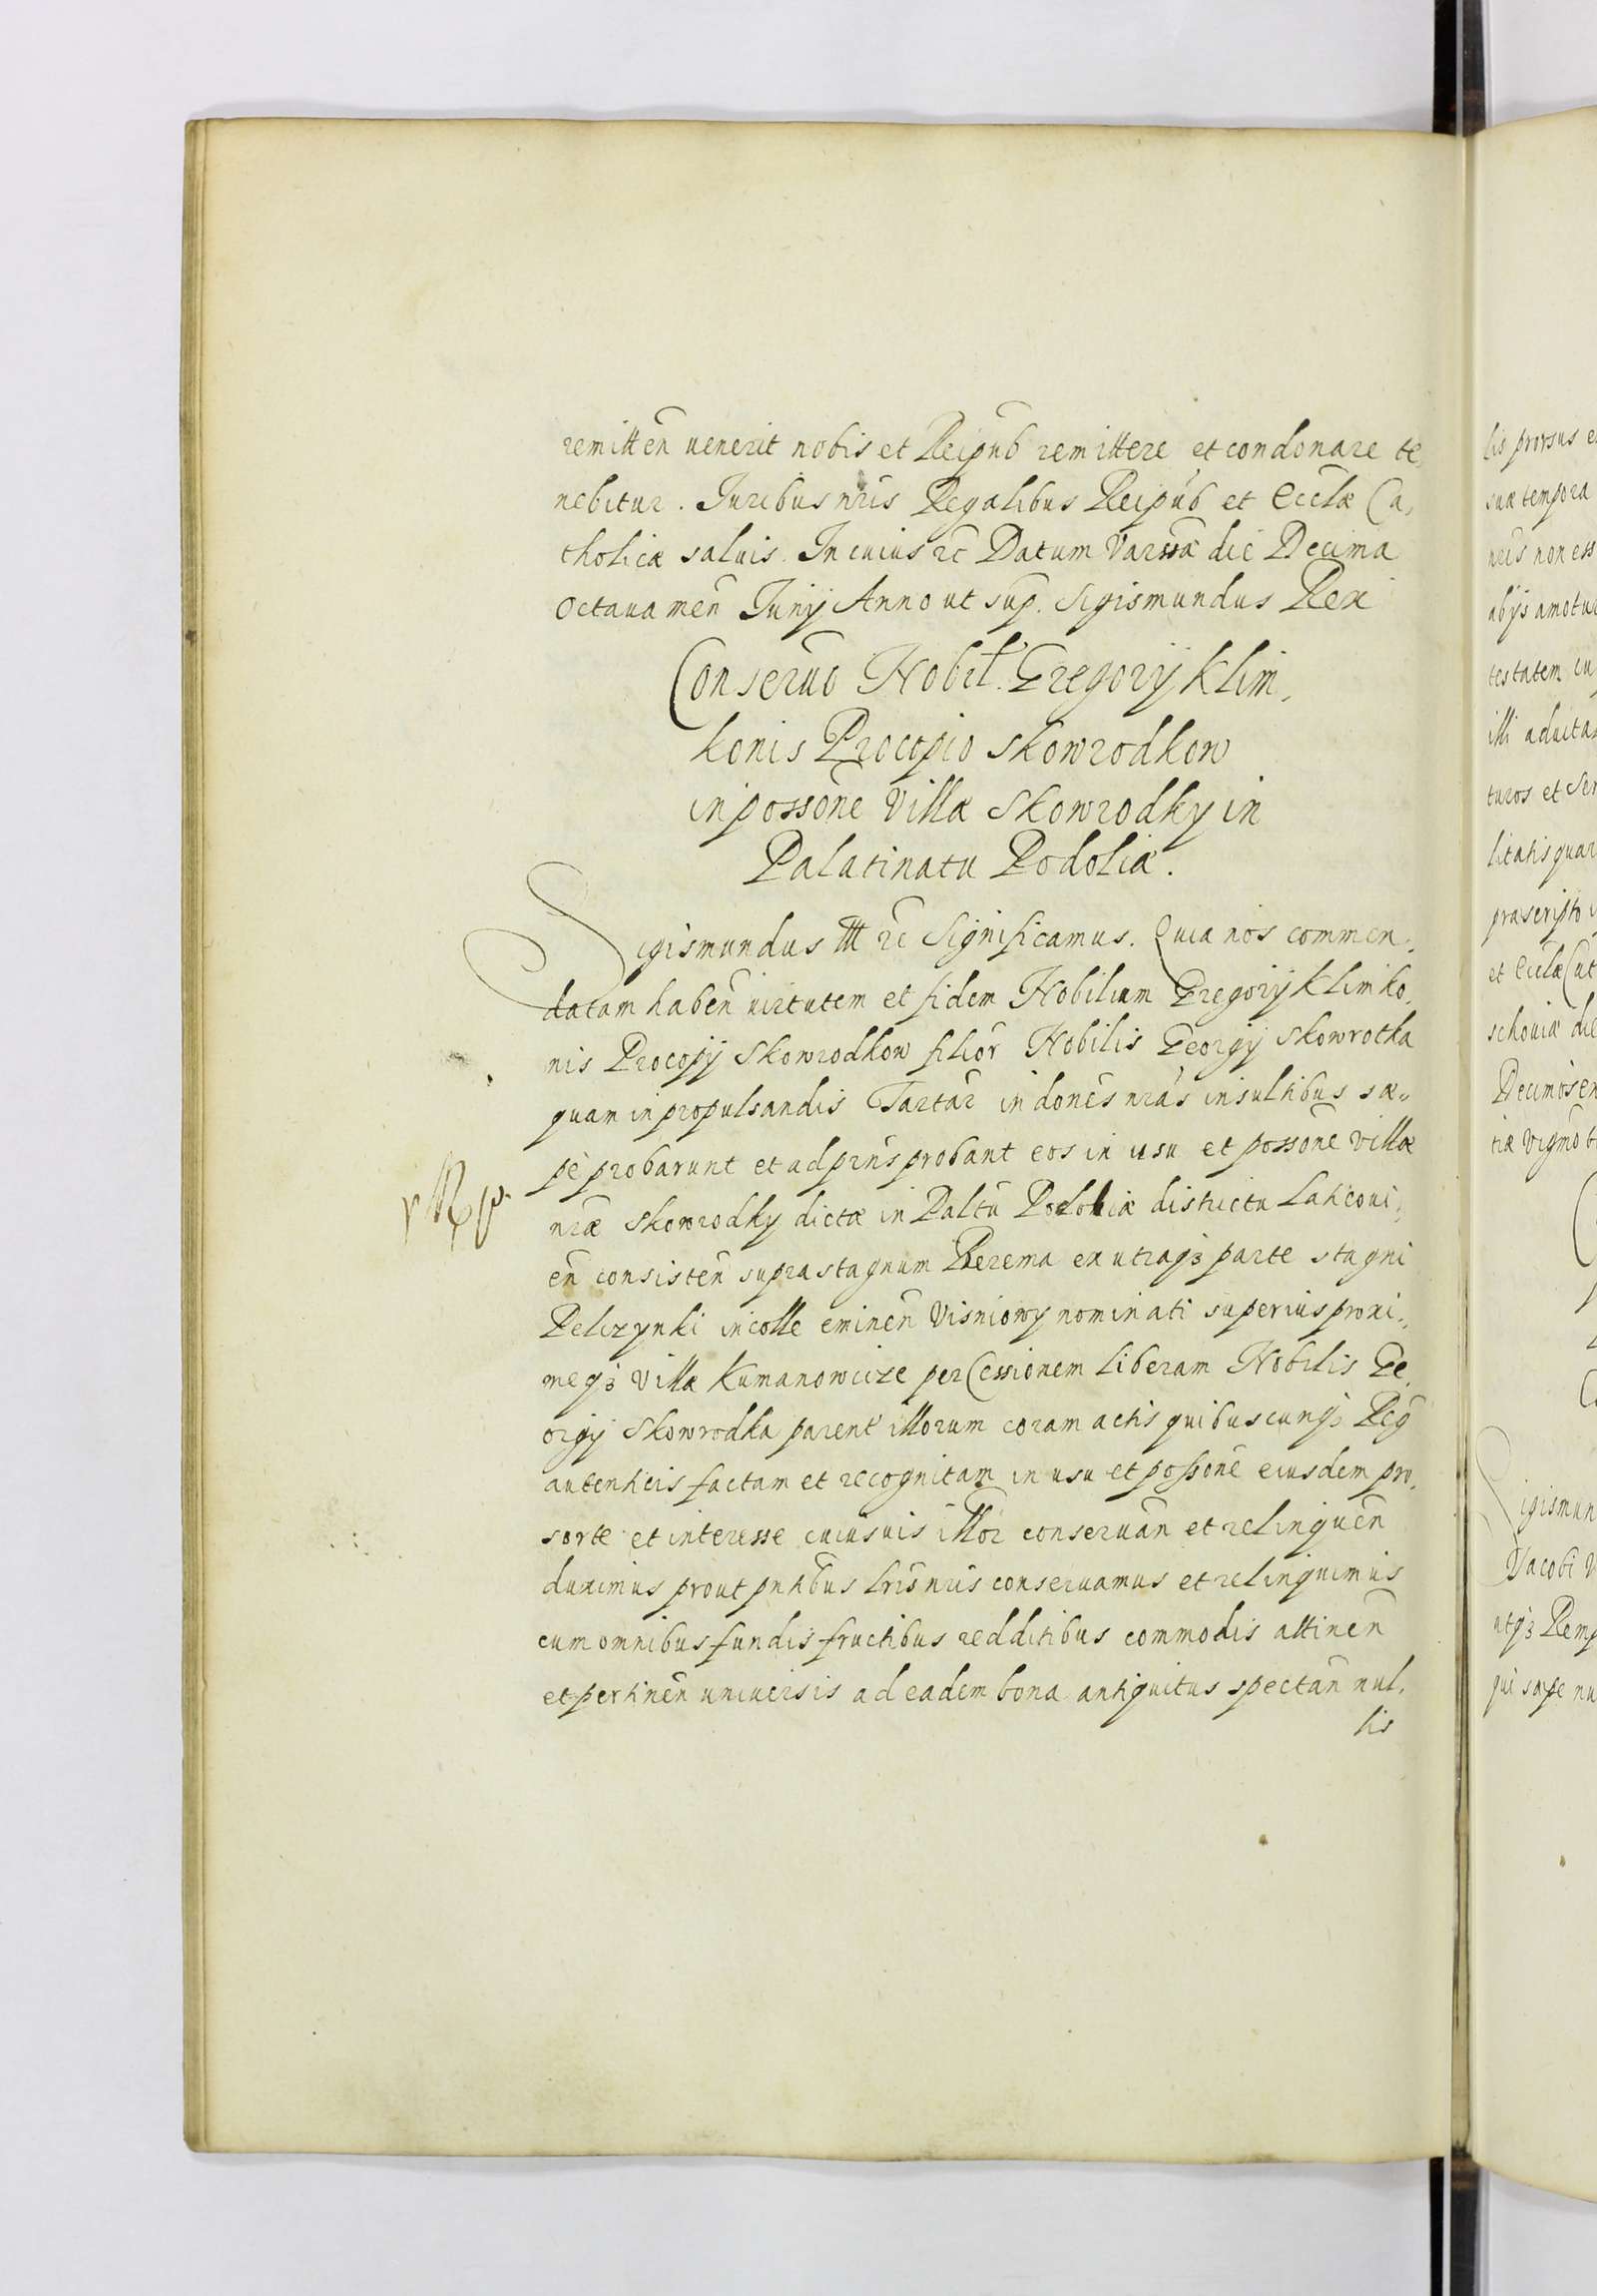 remitten̄ uenerit nobis et Reipub̄ remittere et condonare te,
nebitur. Iuribus nr̄is Regalibus Reipub̄ et Eccl̄æ Ca,
tholicæ saluis. In cuius rc̄ Datum Varssæ die Decima
Octaua men̄ Iunij Anno ut sup. Sigismundus Rex
Conseruo Nobil. Gregorij Klim,
konis Procopio Skowrodkow
in possōne Villæ Skowrodky in
Palatinatu Podoliæ.
Sigismundus III rc̄ Significamus. Quia nos commen,
datam haben̄ uirtutem et fidem Nobilium Gregorij Klimko,
nis Procopij Skowrodkow filior̄ Nobilis Georgij Skowrotka
quam in propulsandis Tartar̄ in donēs nrās insultibus sæ,,
pè probarunt et ad prn̄s probant eos in usu et possōne Villæ
nræ Skowrodky dictæ in Paltū Podoliæ districtu Laticoui,
en̄ consisten̄ supra stagnum Perema ex utraq3 parte stagni
Pelczynki in colle eminen̄ Visniowy nominati superius proxi,,
meq3 Villæ Kumanowcize per Cessionem liberam Nobilis Ge,
orgij Skowrodka parent' illorum coram actis quibuscunq3 Reḡ
autenticis factam et recognitam in usu et possōne eiusdem pro
sorte et interesse cuiusuis illor̄ conseruan̄ et relinquen̄
duximus prout pn̄tibus lrīs nrīs conseruamus et relinquimus
cum omnibus fundis fructibus redditibus commodis attinen̄
et pertinen̄ uniuersis ad eadem bona antiquitus spectan̄ nul,
lis
lis prorsus
suæ tempora
abijs amotu
testatem
illi aduita
turos et Ser
litatis quar
præscripto
et Eccl̄æ Cat
schouiæ die
Sigismun
Jacobi
atq3 Remp
qui sæpe nu